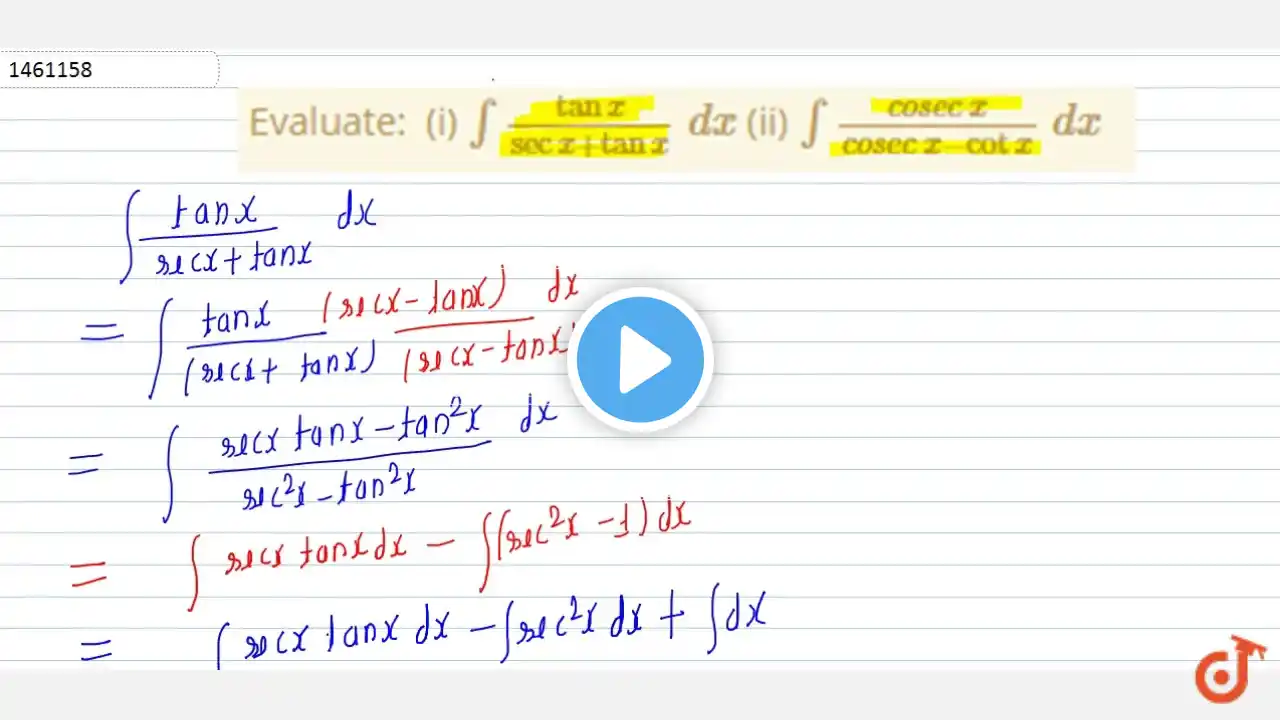 1461158
Evaluate: (i) ∫ tan x / (sec x + tan x) dx (ii) ∫ cosec x / (cosec x − cot x) dx
∫ tanx / (secx + tanx) dx
= ∫ tanx / (secx + tanx) (secx − tanx) / (secx − tanx) dx
= ∫ (secx tanx − tan²x) / (sec²x − tan²x) dx
= ∫ secx tanx dx − ∫ (sec²x − 1) dx
= ∫ secx tanx dx − ∫ sec²x dx + ∫ dx